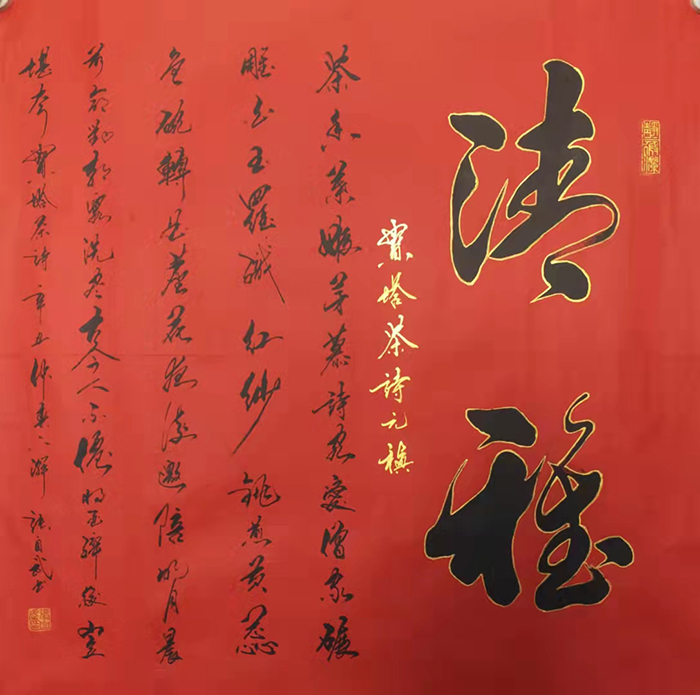 清雅
寶塔茶詩元稹
茶香葉嫩芽慕詩客愛僧家碾
雕白玉羅織紅紗銚煎黃蕊
色碗轉曲塵花夜後邀陪明月晨
前命對朝霞洗盡古今人不倦將至醉後豈
堪夸寶塔茶詩辛丑仲春自武书